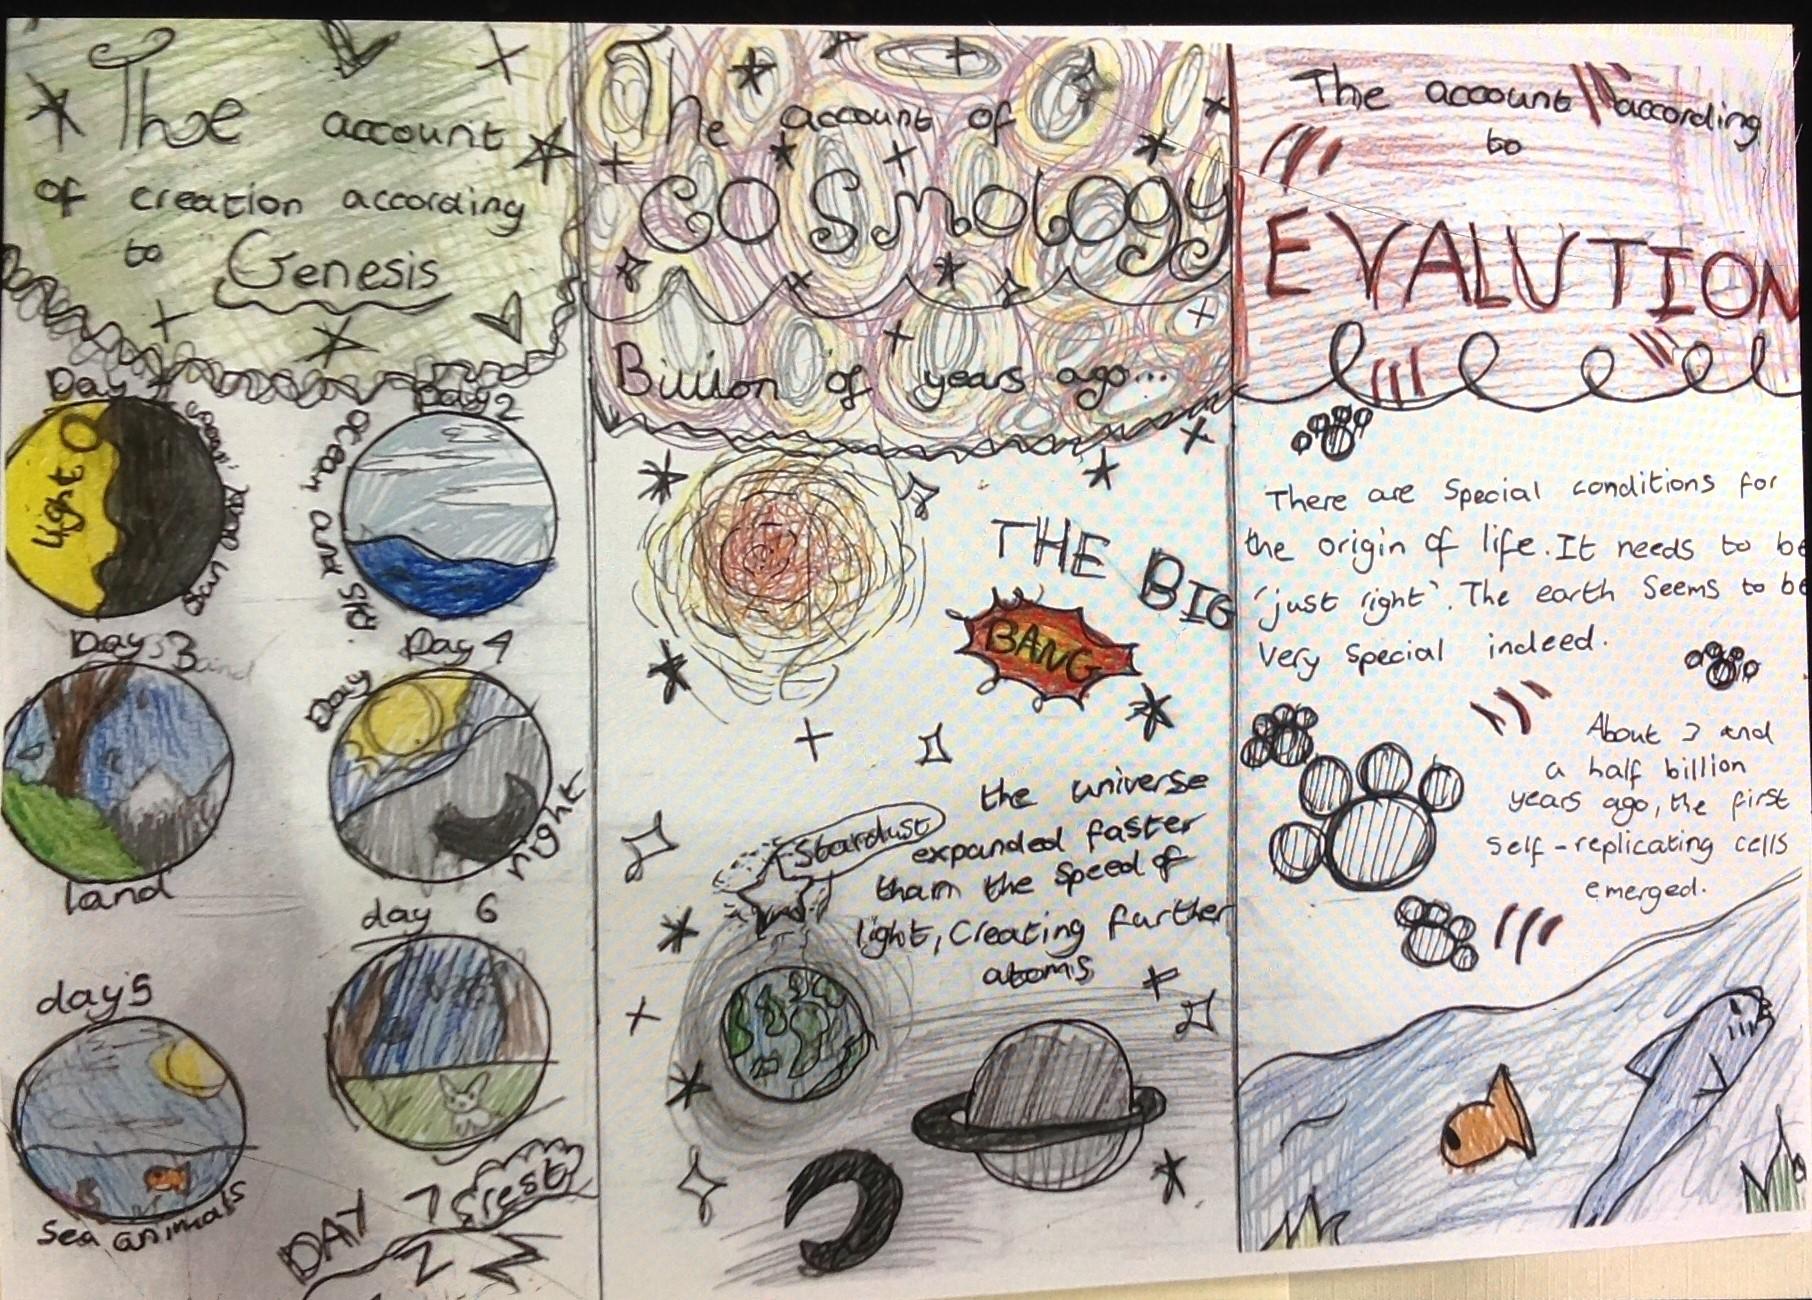 The account
of creation according
to Genesis
Day
Light
Day 2
ocean and sky.
Day 3
land
Day 4
Day
night
day 5
sea animals
day 6
DAY 7 rest
The account of
cosmology
Billion of years ago...
THE BIG
BANG
Stardust
the universe
expanded faster
tham the speed of
light, Creating further
atoms
The account according
to
EVALUTION
There are special conditions for
the origin of life. It needs to be
'just right'. The earth seems to be
very special indeed.
About 3 and
a half billion
years ago, the first
self-replicating cells
emerged.